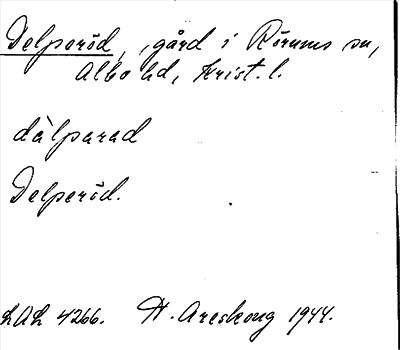 Delperöd, gård i Rörums sn,
Albo hd, Krist. l.
dàlparad
Delperöd.
LAL 4266. H. Areskoug 1944.